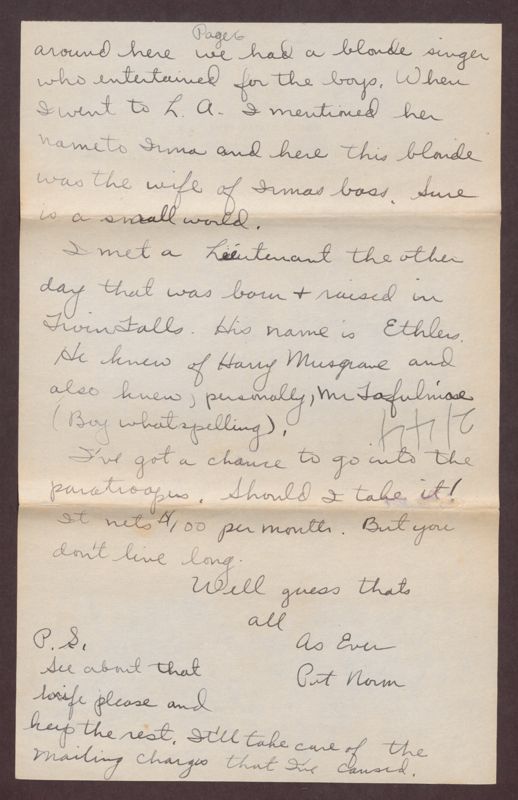 Page 6
around here we had a blonde singer
who entertained for the boys. When
I went to L. A. I mentioned her
name to Irma and here this blonde
was the wife of Irmas boss. Sure
is a small world.
I met a Lieutenant the other
day that was born + raised in
Twin Falls. His name is Ethlers.
He knew of Harry Musgrave and
also knew, personally, Mr
(Boy what spelling).
I've got a chance to go into the
paratroopers. Should I take it!
It nets $100 per month. But you
don't live long.
Well guess thats
all
As Ever
Pvt Norm
P.S.
See about that
please and
keep the rest. It'll take care of the
mailing charges that I've caused.